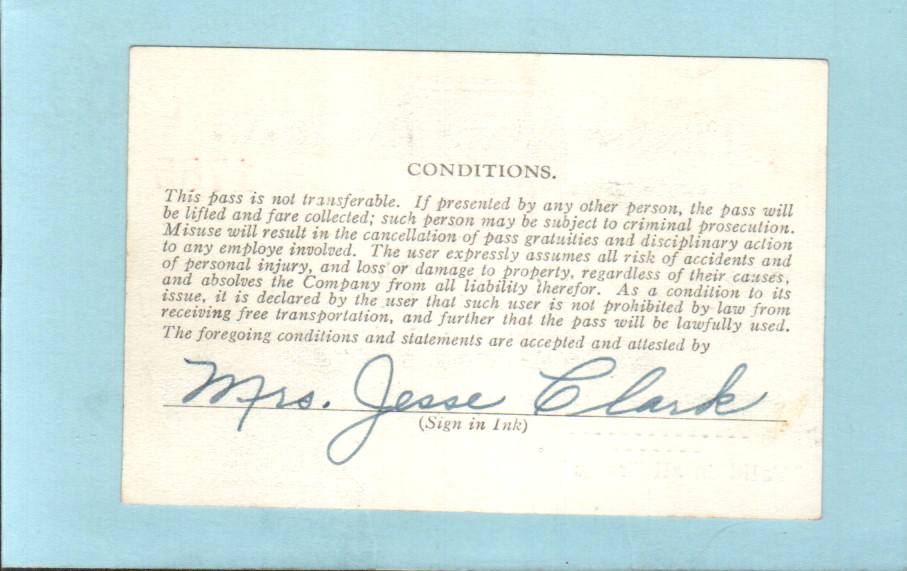 CONDITIONS.
This pass is not transferable. If presented by any other person, the pass will
be lifted and fare collected; such person may be subject to criminal prosecution.
Misuse will result in the cancellation of pass gratuities and disciplinary action
to any employe involved. The user expressly assumes all risk of accidents and
of personal injury, and loss or damage to property, regardless of their causes,
and absolves the Company from all liability therefor. As a condition to its
issue, it is declared by the user that such user is not prohibited by law from
receiving free transportation, and further that the pass will be lawfully used.
The foregoing conditions and statements are accepted and attested by
Mrs. Jesse Clark
(Sign in Ink)